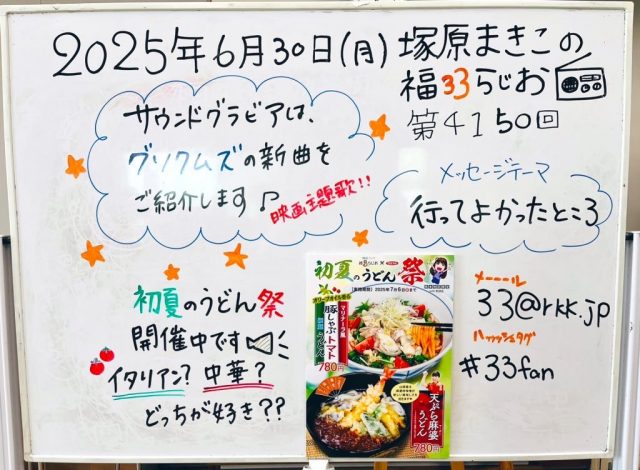 2025年6月30日(月) 塚原まきこの
福33らじお
第4150回
サウンドグラビアは、
グソクムズの新曲を
ご紹介します♪
映画主題歌!!
メッセージテーマ
行ってよかったところ
初夏のうどん祭
開催中です
イタリアン? 中華?
どっちが好き??
メーーール
33@rkk.jp
ハッッッシュタグ
#33fan
初夏のうどん祭
オリーブオイル香る
マリナーラ風
豚しゃぶトマト
うどん
780円
天ぷら麻婆
うどん
780円